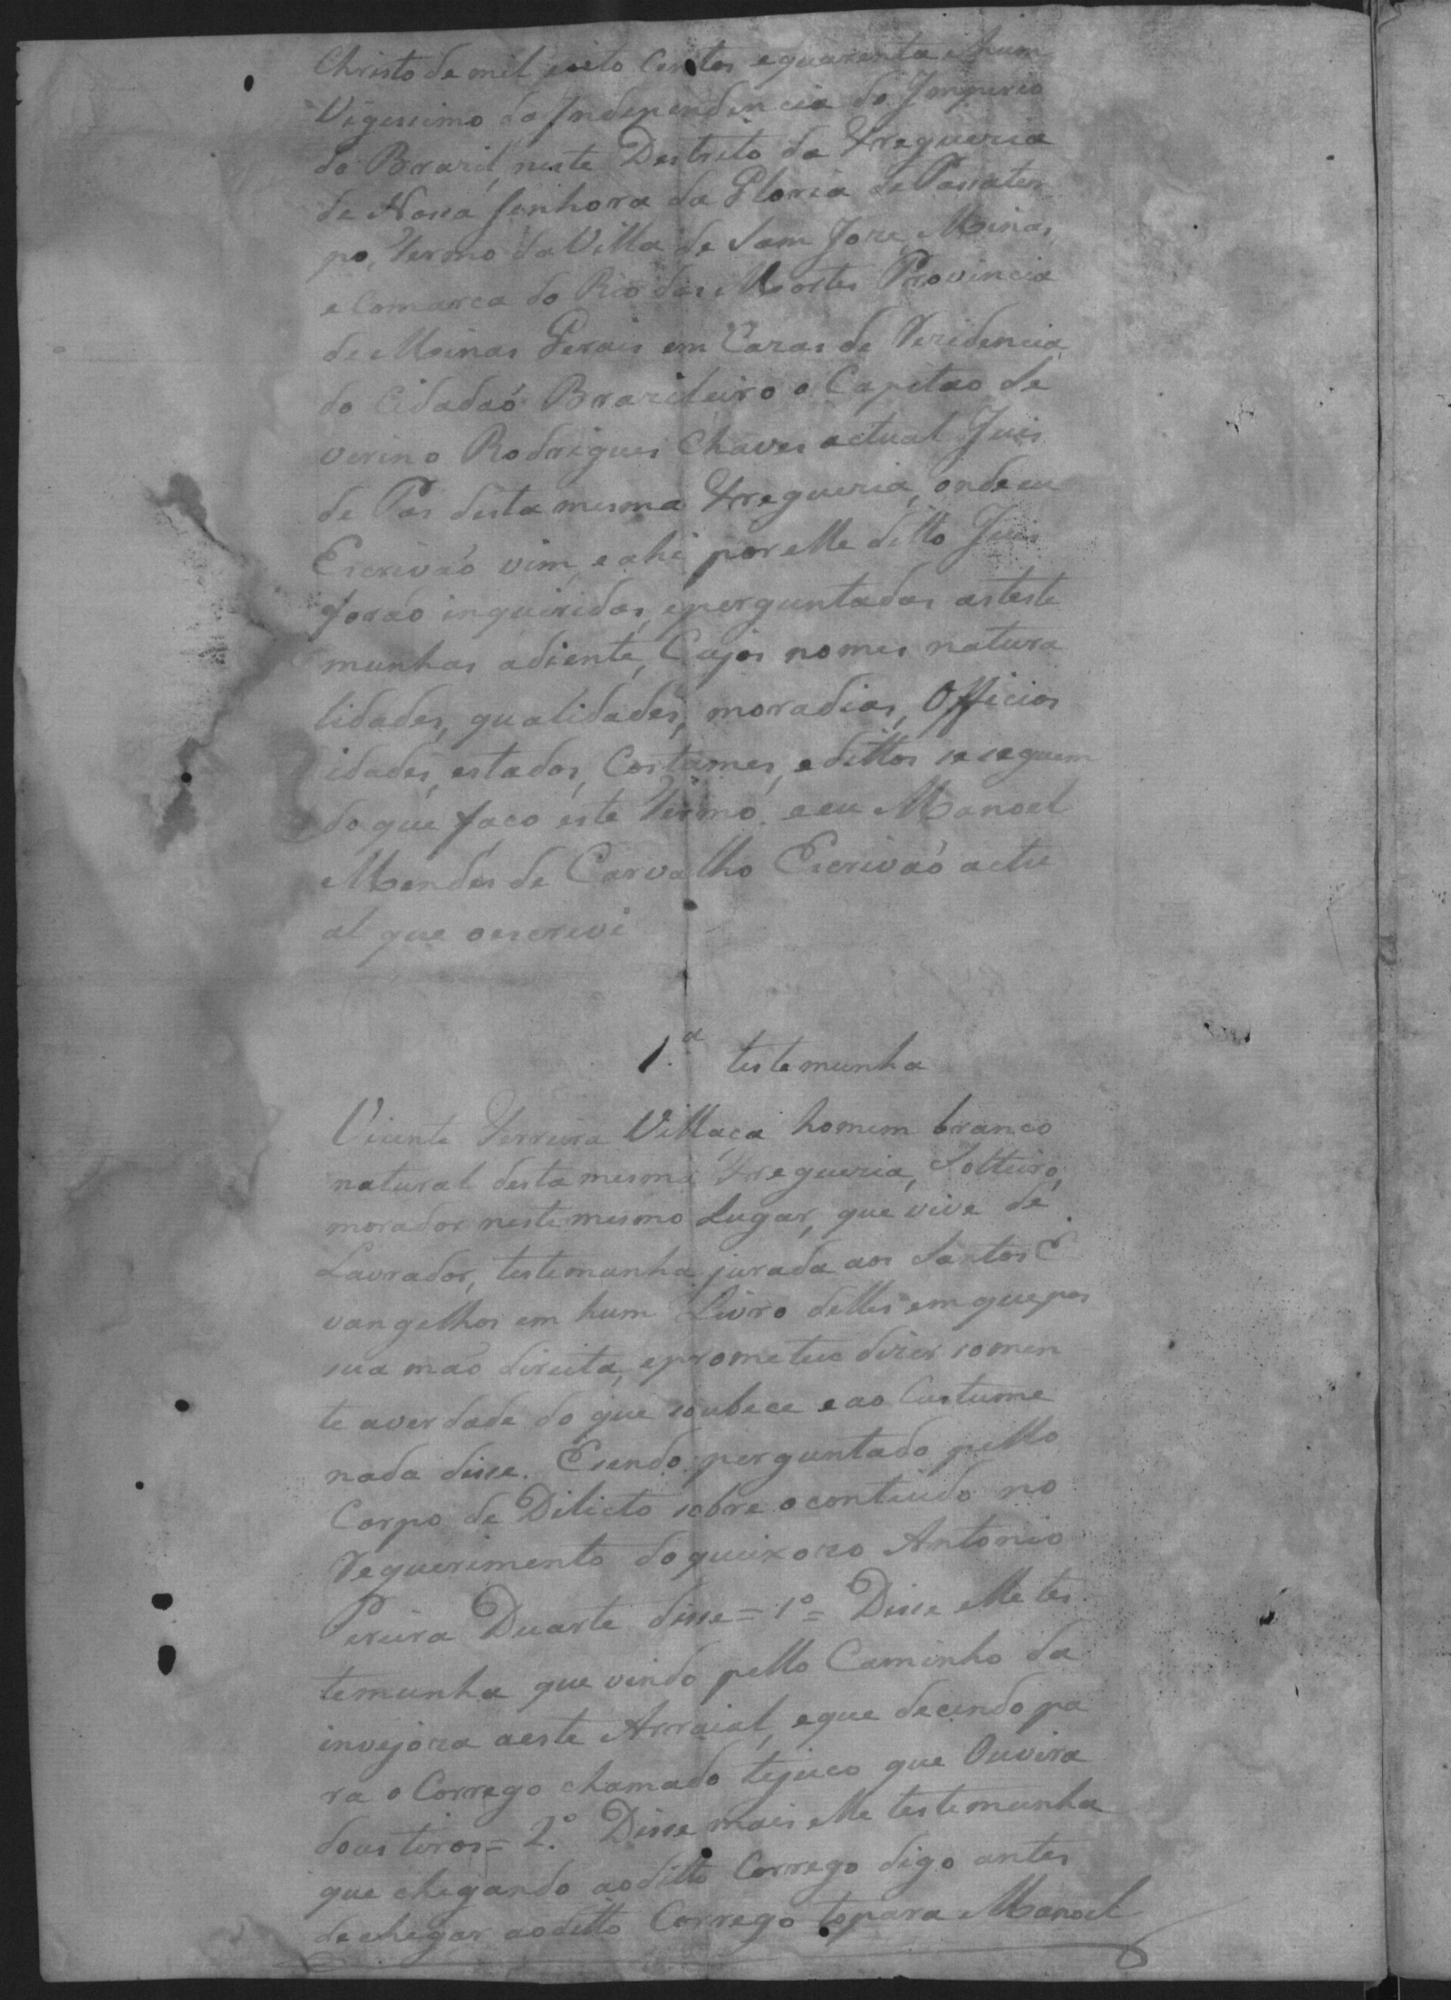 Christo de mil eoito Centos equarenta ehum
Vigessimo da Independencia do Imperio
do Brazil, neste Destrito da Freguezia
de Nossa Senhora da Gloria de Passatem
po, Termo da Villa de Sam Joze, Minas,
e Comarca do Rio das Mortes Provincia
de Minas Gerais em Cazas de Rezidencia
do Cidadaõ Brazileiro o Capitao Se
verino Rodrigues Chaves actual Juis
de Pas desta mesma Freguezia, onde eu
Escrivaõ vim, e ahi por elle ditto Juis
foraõ inqueridas, eperguntadas asteste
munhas adiente, Cujos nomes natura
lidades, qualidades, moradias, Officios
idades, estados, Costumes, edittos seseguem
do que faco este Termo, eeu Manoel
Mendes de Carvalho Escrivaõ actu
al que oescrevi
1.ª testemunha
Vicente Ferreira Villaça homem branco
natural desta mesma Freguezia, Solteiro,
morador nestemesmo Lugar, que vive de
Lavrador, testemunha jurada aos Santos E
vangelhos em hum Livro delles em que pos
sua maõ direita, eprometeu dizer somen
te averdade do que soubece eao Custume
nada disse. Esendo perguntado pello
Corpo de Dilicto sobre ocontiudo no
Requerimento doqueixozo Antonio
Pereira Duarte disse = 1º = Disse elle tes
temunha que vindo pello Caminho da
invejóza aeste Arraial, eque decendo pa
ra o Corrego chamado tejuco que Ouvira
dous tiros = 2.º Disse mais elle testemunha
que chegando aoditto Corrego digo antes
dechegar aoditto Corrego topara Manoel